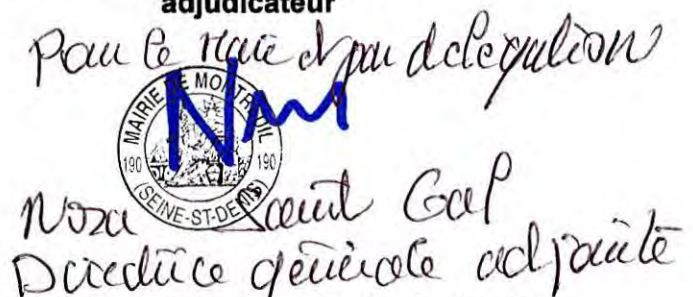 adjudicateur
Pour le Maire et par délégation
MAIRIE DE MONTREUIL
190 190
(SEINE-ST-DENIS)
Nora Saint Gal
Directrice générale adjointe